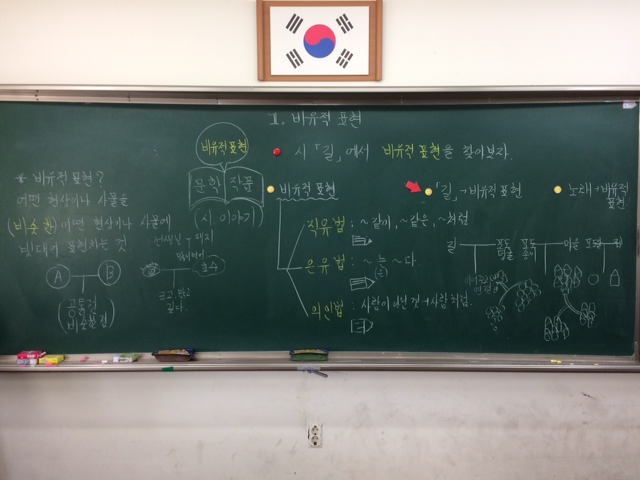 II. 비유적 표현
비유적 표현
문학 작품
(시, 이야기)
시 「길」에서 비유적 표현을 찾아보자.
* 비유적 표현?
어떤 현상이나 사물을
(비슷한) 어떤 현상이나 사물에
빗대어 표현하는 것
A B
공통점
비슷한 점
선생님 돼지
비유적 표현
직유법 : ~같이, ~같은, ~처럼
은유법 : ~는 ~다.
(은)
의인법 : 사람이 아닌 것→사람처럼.
「길」→비유적 표현
길 포도 포도 마을
덩굴 송이
노래→비유적
표현